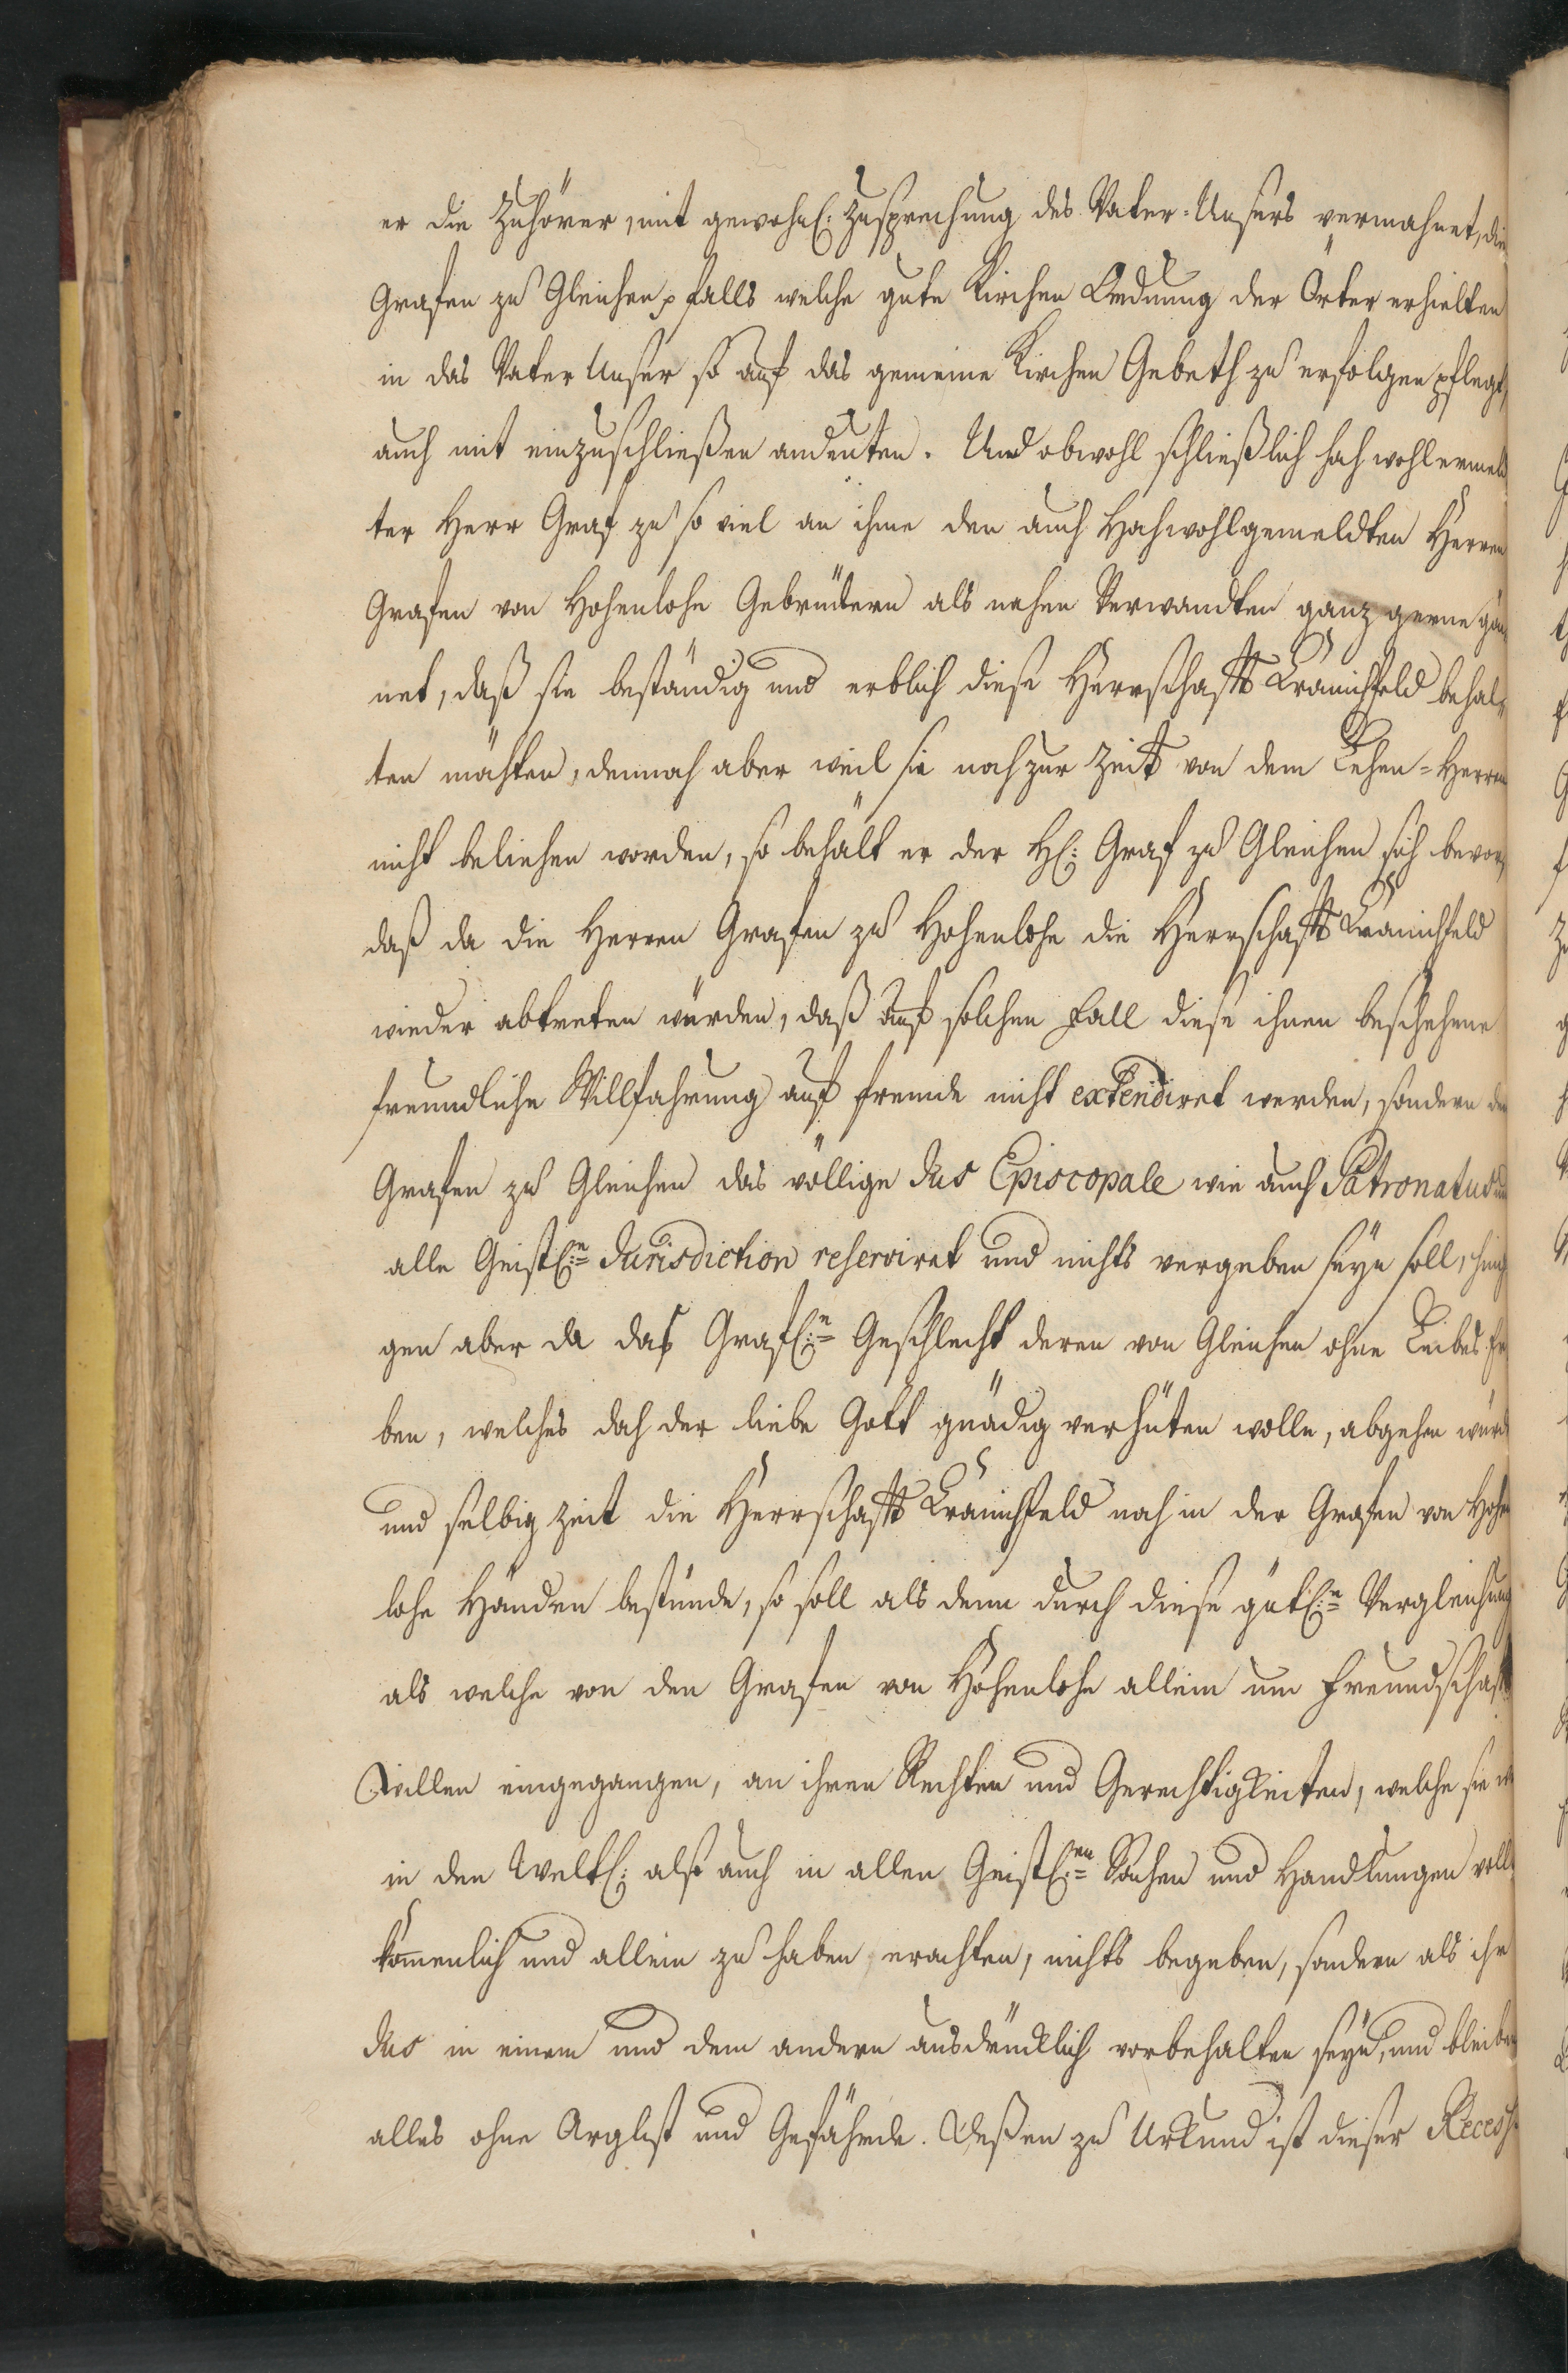 er die Zuhörer, mit gewohnl: Zusprechung des Vater-Unsers vermahnet, die
Grafen zu Gleichen p falls welche gute Kirchen Ordnung der Örter erhielten
in das Vater Unser so auf das gemeine Kirchen Gebeth zu erfolgen pflegt,
auch mit einzuschließen andeuten. Und obwohl schließlich hoch wohlermeld
ter Herr Graf zu so viel an ihme den auch Hochwohlgemeldten Herren
Grafen von Hohenlohe Gebrüdern als nahen Verwandten ganz gerne gön
net, daß sie beständig und erblich diese Herrschafft Kranichfeld behal-
ten möchten, dennoch aber weil sie noch zur Zeit von dem Lehen-Herren
nicht beliehen worden, so behält er der H: Graf zu Gleichen sich bevor,
daß da die Herren Grafen zu Hohenlohe die Herrschafft Kranichfeld
wieder abtreten würden, daß auf solchen Fall diese ihnen beschehene
freundliche Willfahrung auf fremde nicht extendiret werden, sondern den
Grafen zu Gleichen das völlige Jus Episcopale wie auch Patronatus und
alle Geistl:n Jurisdiction reserviret und nichts vergeben seyn soll, hing
gen aber da das Gräfl:n Geschlecht deren von Gleichen ohne Leibes Er
ben, welches doch der liebe Gott gnädig verhüten wolle, abgehen würd
und selbig Zeit die Herrschafft Kranichfeld noch in der Grafen von Hohen
lohe Händen bestünde, so soll als denn durch diese gütl:n Vergleichung
als welche von den Grafen von Hohenlohe allein um Freundschafft
Willen eingegangen, an ihren Rechten und Gerechtigkeiten, welche sie
in den Weltl: alß auch in allen Geistl:en Sachen und Handlungen voll
kommenlich und allein zu haben erachten, nichts begeben, sondern als ihr
Jus in einem und dem andern ausdrücklich vorbehalten seyn, und bleiben
alles ohne Arglist und Gefährde. Deßen zu Urkund ist dieser Recess